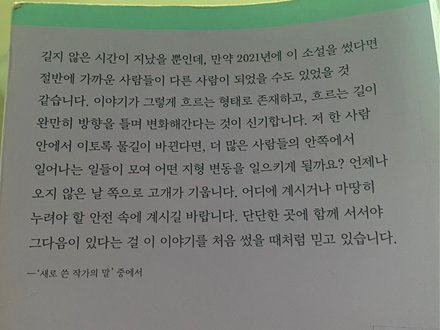 길지 않은 시간이 지났을 뿐인데, 만약 2021년에 이 소설을 썼다면
절반에 가까운 사람들이 다른 사람이 되었을 수도 있었을 것
같습니다. 이야기가 그렇게 흐르는 형태로 존재하고, 흐르는 길이
완만히 방향을 틀며 변화해간다는 것이 신기합니다. 저 한 사람
안에서 이토록 물길이 바뀐다면, 더 많은 사람들의 안쪽에서
일어나는 일들이 모여 어떤 지형 변동을 일으키게 될까요? 언제나
오지 않은 날 쪽으로 고개가 기웁니다. 어디에 계시거나 마땅히
누려야 할 안전 속에 계시길 바랍니다. 단단한 곳에 함께 서서야
그다음이 있다는 걸 이 이야기를 처음 썼을 때처럼 믿고 있습니다.
—'새로 쓴 작가의 말' 중에서